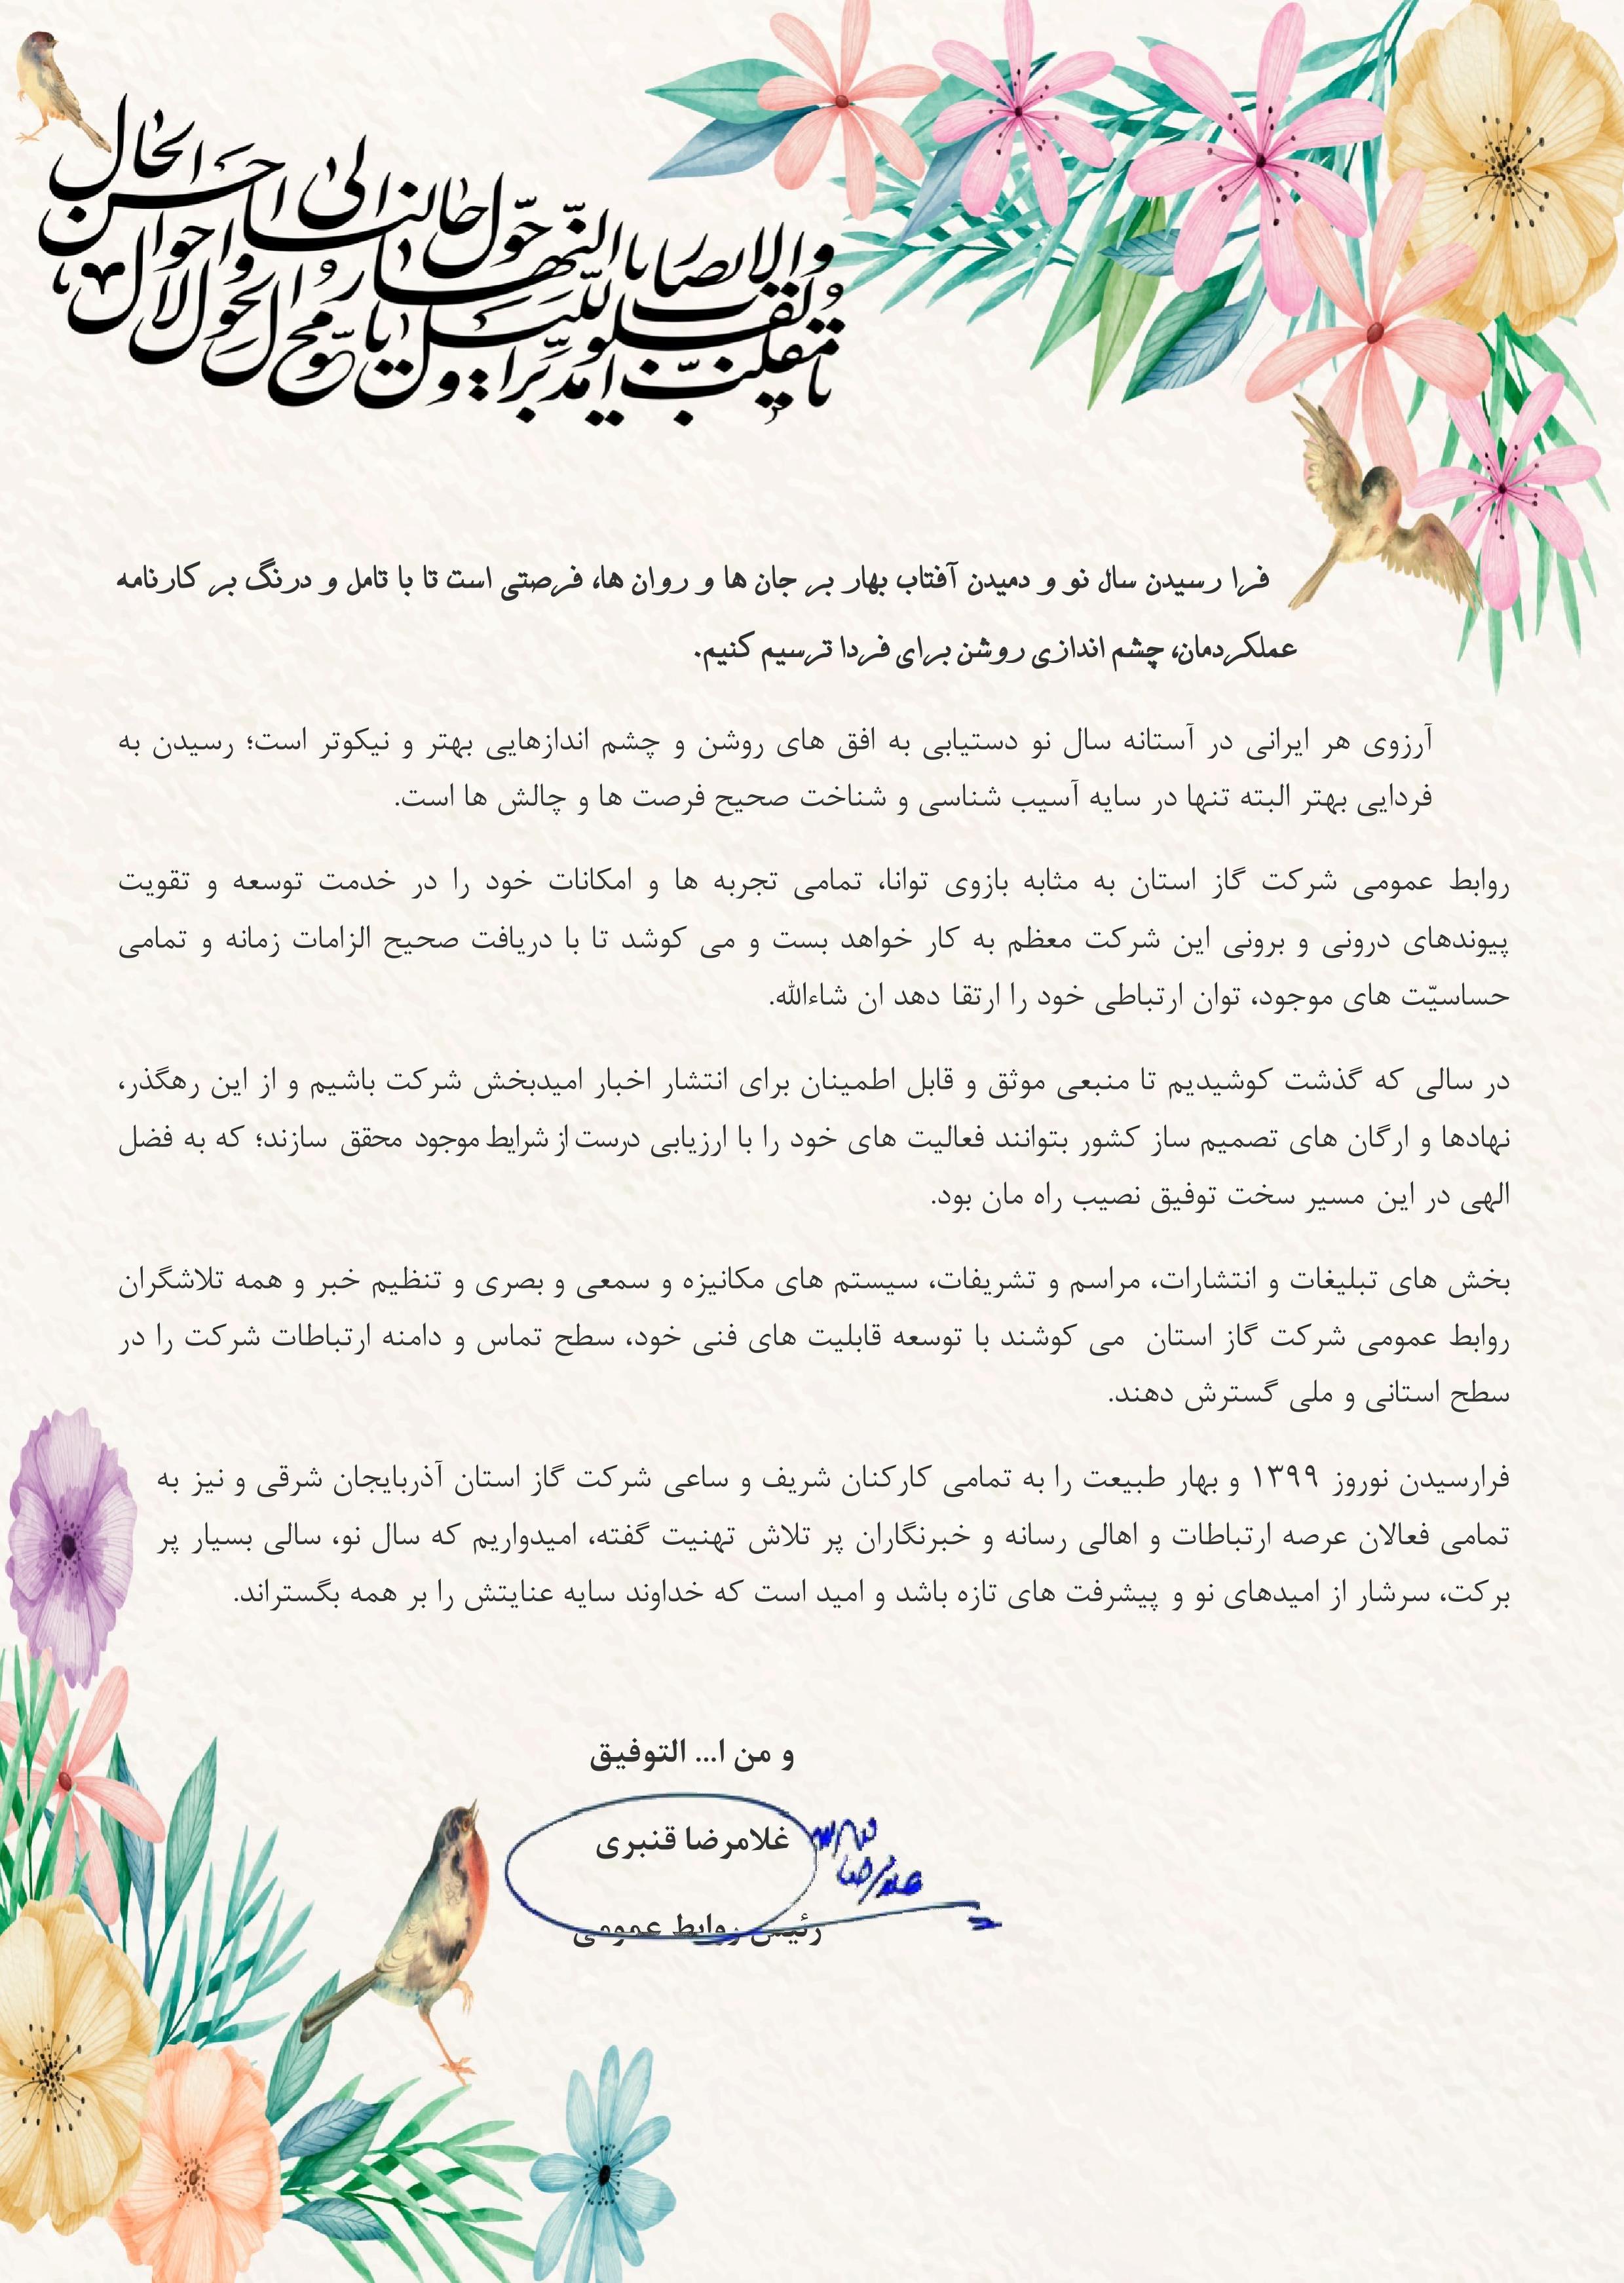 یا مقلب القلوب و الابصار
یا مدبر اللیل و النهار
یا محول الحول و الاحوال
حول حالنا الی احسن الحال
فرا رسیدن سال نو و دمیدن آفتاب بهار بر جان ها و روان ها، فرصتی است تا با تامل و درنگ بر کارنامه
عملکردمان، چشم اندازی روشن برای فردا ترسیم کنیم.
آرزوی هر ایرانی در آستانه سال نو دستیابی به افق های روشن و چشم اندازهایی بهتر و نیکوتر است؛ رسیدن به
فردایی بهتر البته تنها در سایه آسیب شناسی و شناخت صحیح فرصت ها و چالش ها است.
روابط عمومی شرکت گاز استان به مثابه بازوی توانا، تمامی تجربه ها و امکانات خود را در خدمت توسعه و تقویت
پیوندهای درونی و برونی این شرکت معظم به کار خواهد بست و می کوشد تا با دریافت صحیح الزامات زمانه و تمامی
حساسیّت های موجود، توان ارتباطی خود را ارتقا دهد ان شاءالله.
در سالی که گذشت کوشیدیم تا منبعی موثق و قابل اطمینان برای انتشار اخبار امیدبخش شرکت باشیم و از این رهگذر،
نهادها و ارگان های تصمیم ساز کشور بتوانند فعالیت های خود را با ارزیابی درست از شرایط موجود محقق سازند؛ که به فضل
الهی در این مسیر سخت توفیق نصیب راه مان بود.
بخش های تبلیغات و انتشارات، مراسم و تشریفات، سیستم های مکانیزه و سمعی و بصری و تنظیم خبر و همه تلاشگران
روابط عمومی شرکت گاز استان می کوشند با توسعه قابلیت های فنی خود، سطح تماس و دامنه ارتباطات شرکت را در
سطح استانی و ملی گسترش دهند.
فرارسیدن نوروز ۱۳۹۹ و بهار طبیعت را به تمامی کارکنان شریف و ساعی شرکت گاز استان آذربایجان شرقی و نیز به
تمامی فعالان عرصه ارتباطات و اهالی رسانه و خبرنگاران پر تلاش تهنیت گفته، امیدواریم که سال نو، سالی بسیار پر
برکت، سرشار از امیدهای نو و پیشرفت های تازه باشد و امید است که خداوند سایه عنایتش را بر همه بگستراند.
و من ا... التوفیق
غلامرضا قنبری
رئیس روابط عمومی